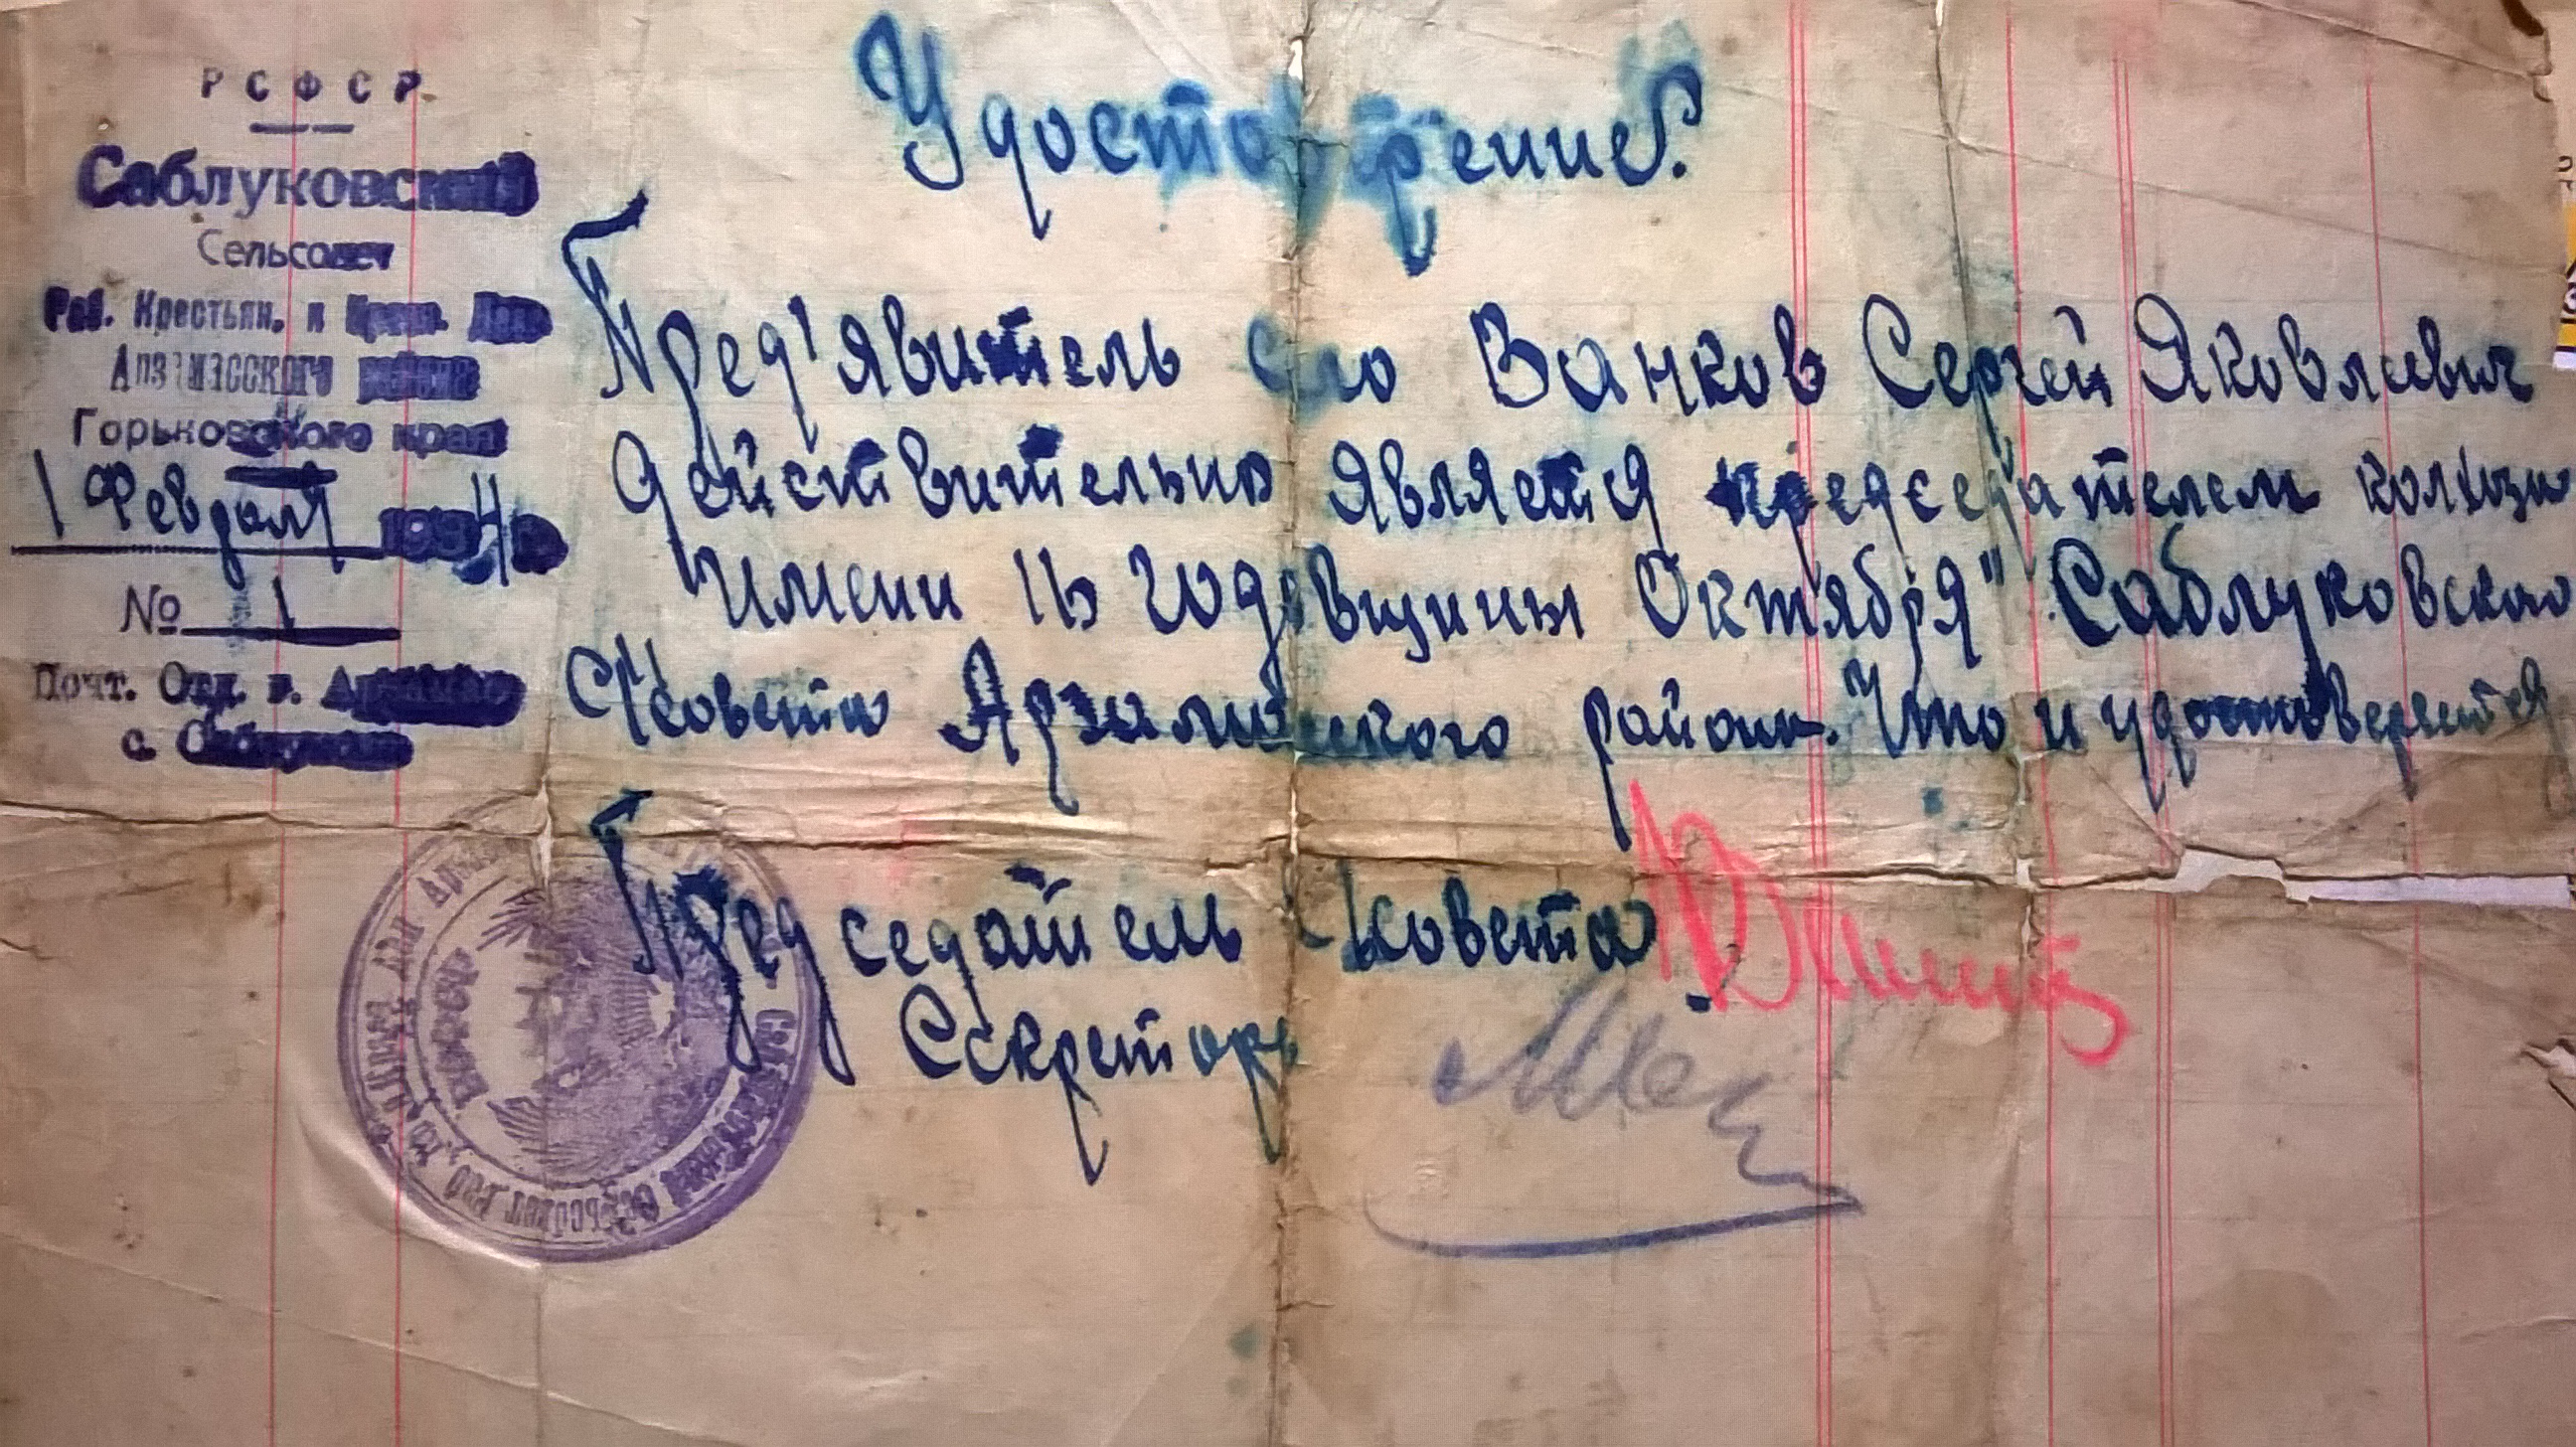 Р С Ф С Р.
Саблуковский
Сельсовет
Раб. Крестьян. и Крас. Деп
Арзамасского района
Горьковского края
1 Февраля 1934 г
№ 1
Почт. Отд. г. Арзамас
с. Саблуково
Удостоврение.
Пред'явитель сего Ванков Сергей Яковлевич
действительно является председателем колхоза
Имени 16 годовщины Октября" Саблуковского
С/совета Арзамасского района. Что и удостоверяется
Председатель с/совета
Секретарь
РСФСР